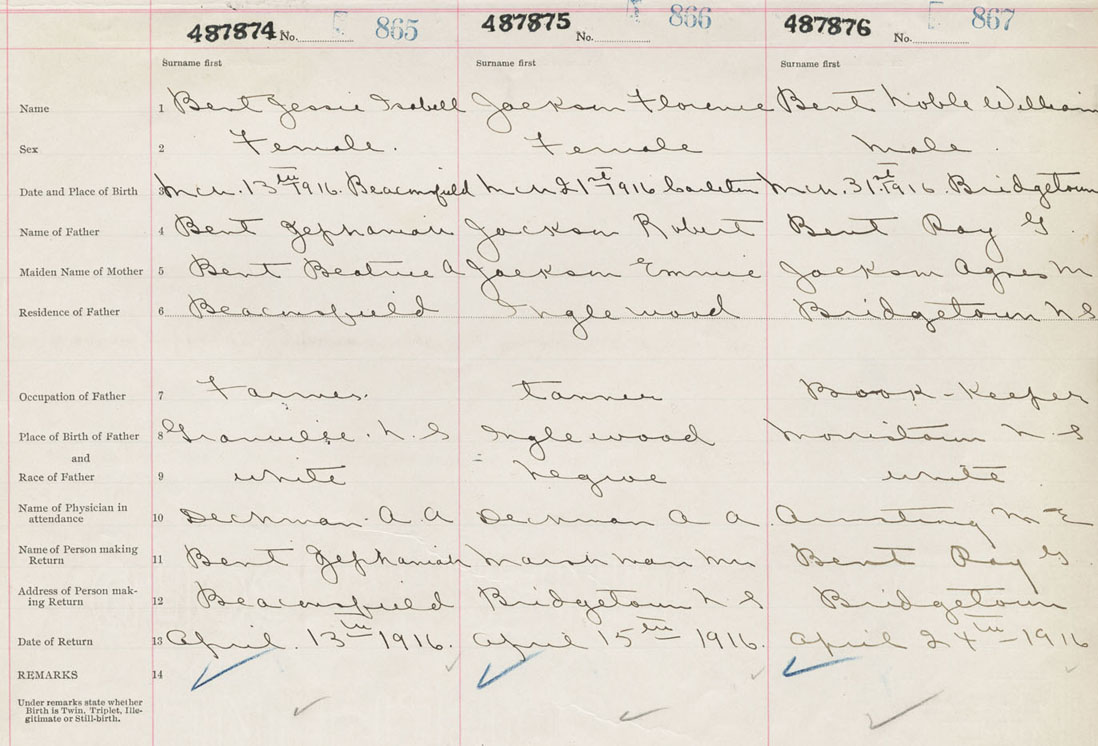 487874 No. 865 487875 No. 866 487876 No. 867
Surname first Surname first Surname first
Name 1 Bent Jessie Isabell Jackson Florence Bent Noble William
Sex 2 Female. Female Male.
Date and Place of Birth 3 Mch. 13th 1916. Beaconsfield Mch 21st 1916 Mch. 31st 1916. Bridgetown
Name of Father 4 Bent Zephaniah Jackson Robert Bent Ray G.
Maiden Name of Mother 5 Bent Beatrice A Jackson Emmie Jackson Agnes M
Residence of Father 6 Beaconsfield Inglewood Bridgetown N S
Occupation of Father 7 Farmer. tanner Book-Keeper
Place of Birth of Father 8 Granville. N. S Inglewood Morristown N. S
and
Race of Father 9 white Negroe white
Name of Physician in
attendance 10 Deckman. A. A Deckman A A Armstrong M E
Name of Person making
Return 11 Bent Zephaniah Marshman Mrs Bent Ray G
Address of Person mak-
ing Return 12 Beaconsfield Bridgetown N S Bridgetown
Date of Return 13 April. 13th 1916. April 15th 1916. April 24th 1916
REMARKS 14
Under remarks state whether
Birth is Twin, Triplet, Ille-
gitimate or Still-birth.